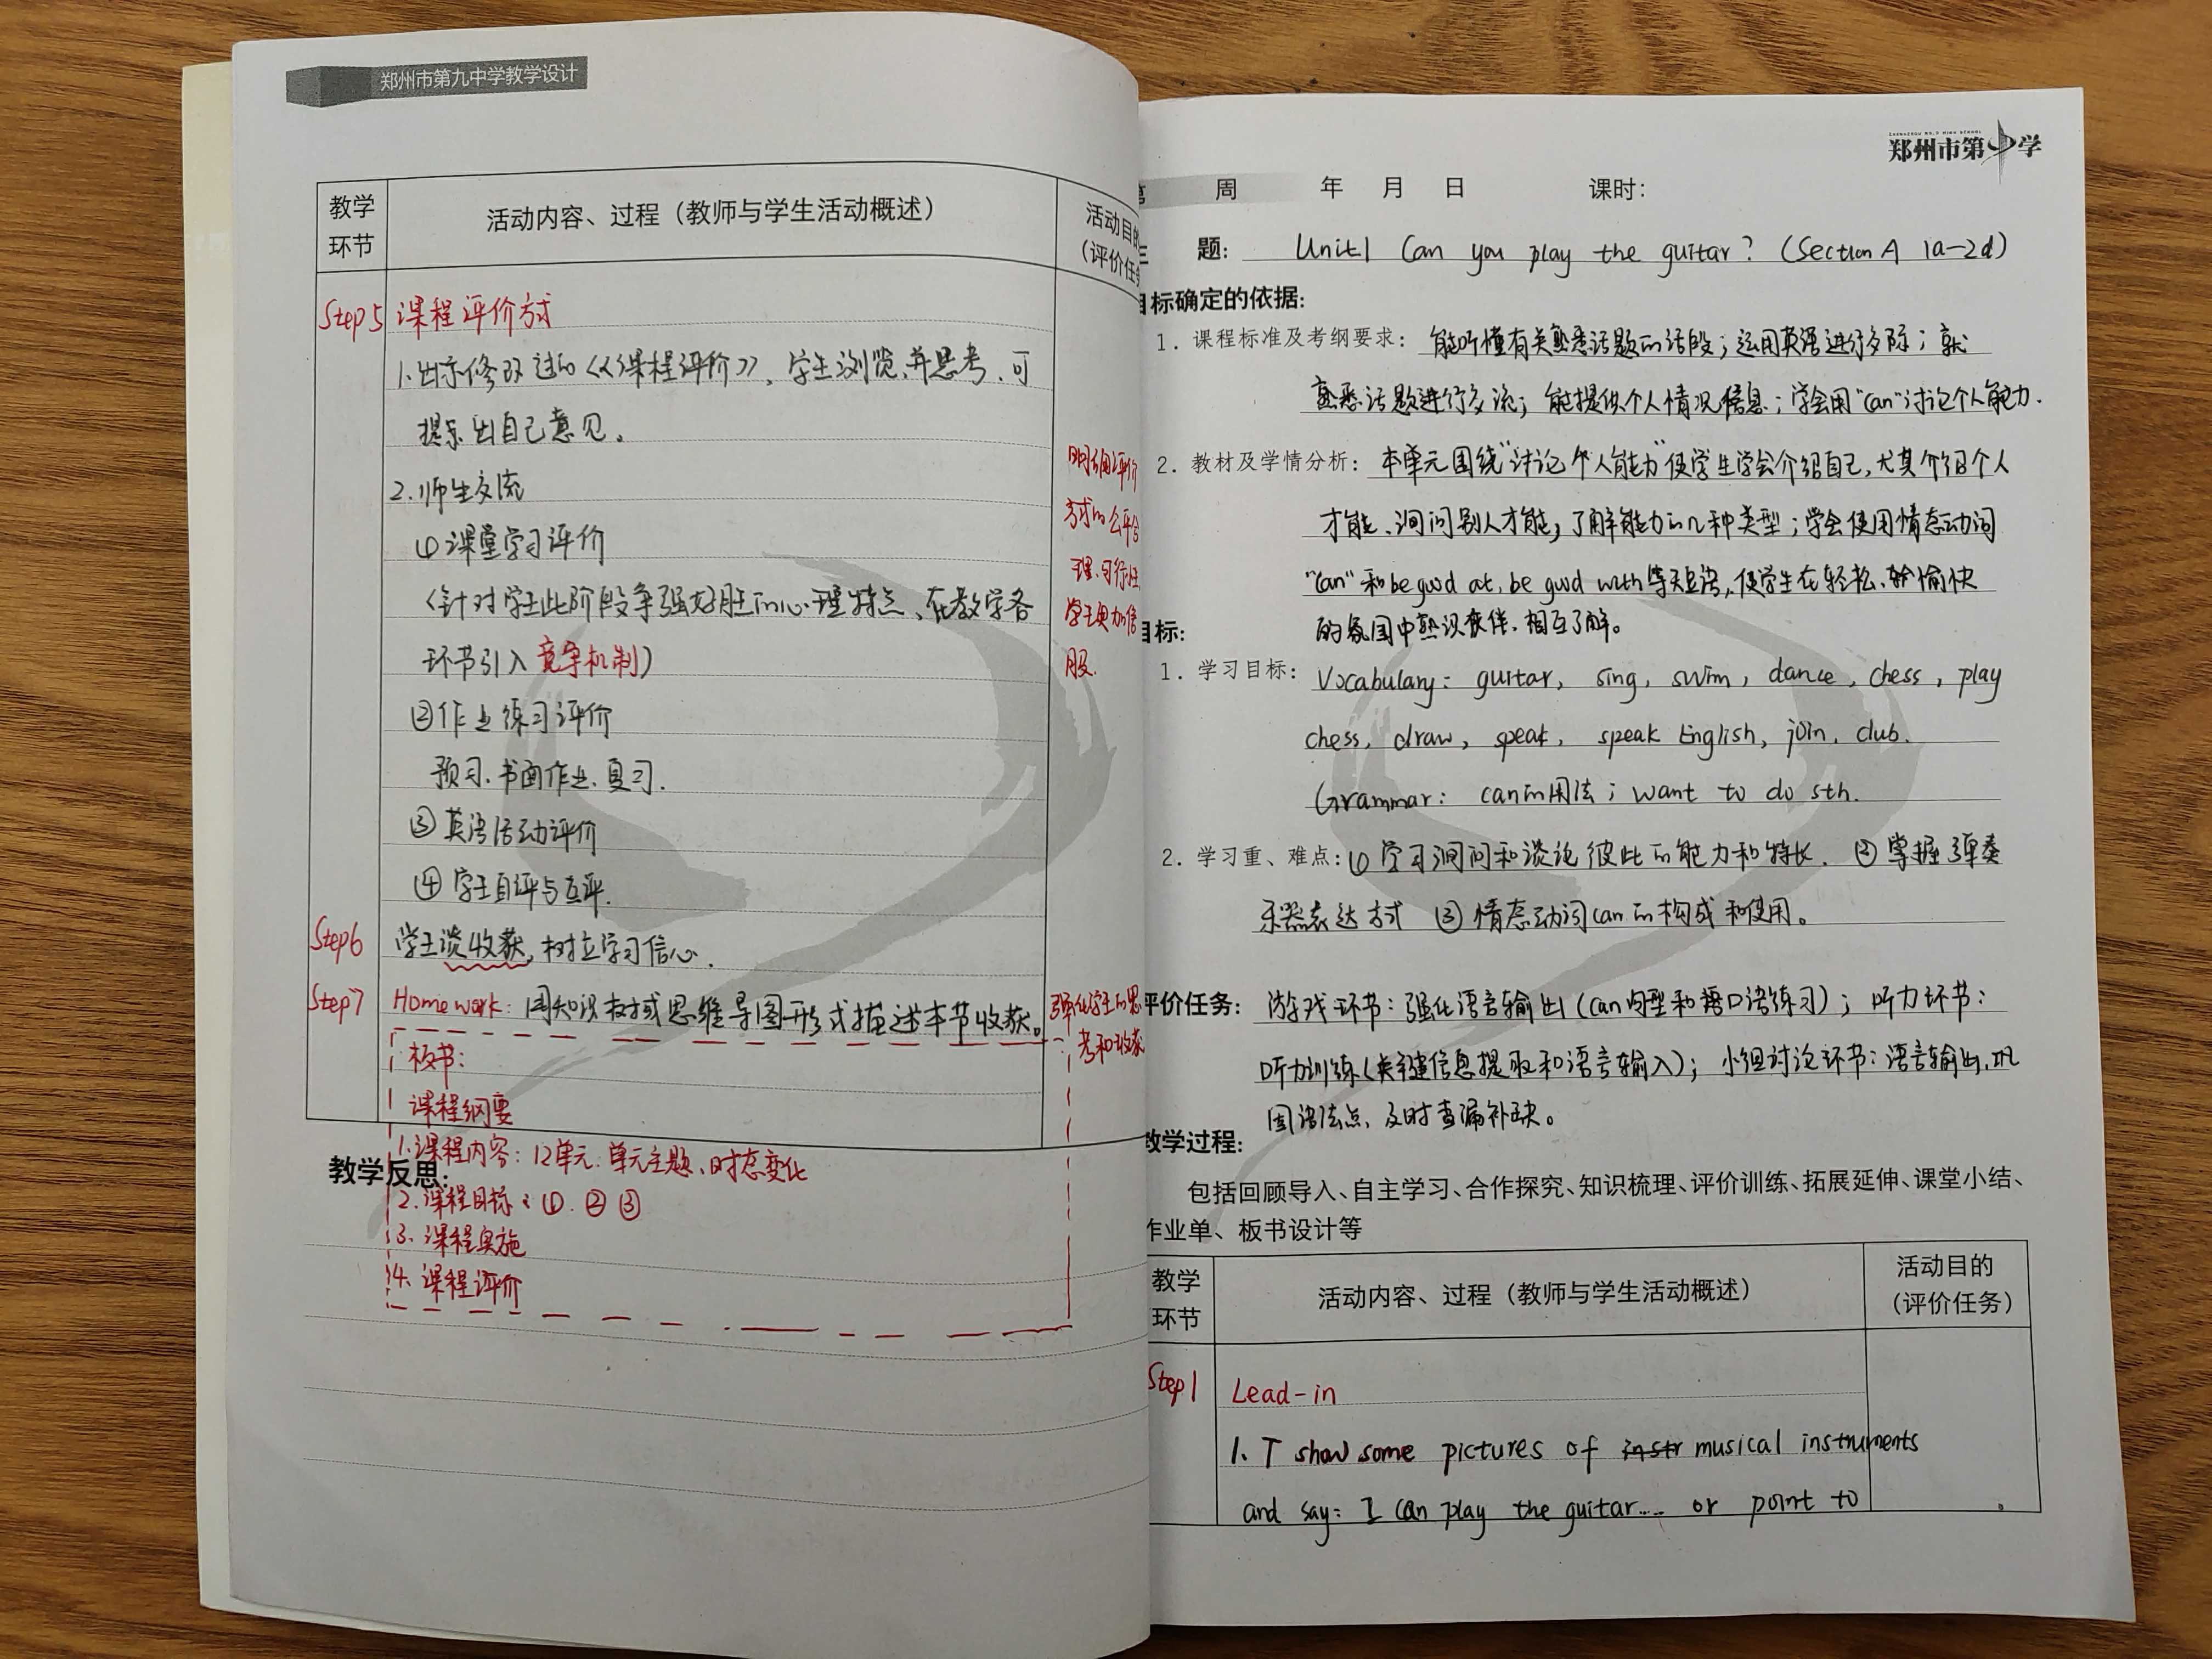 郑州市第九中学教学设计
教学环节
活动内容、过程（教师与学生活动概述）
活动目的
（评价任务
Step5 课程评价方式
1.出示修改过的《课程评价》，学生浏览、并思考、可
提示出自己意见。
2.师生交流
①课堂学习评价
（针对学生此阶段争强好胜的心理特点、在教学各
环节引入竞争机制）
②作业练习评价
预习、书面作业、复习.
③英语活动评价
④学生自评与互评.
明确评价
方式的公平合
理、可行性
学生更加信
服.
Step6 学生谈收获,树立学习信心.
Step7 Homework: 用知识树或思维导图形式描述本节收获。
强化学生的思
考和收获
板书:
课程纲要
1.课程内容: 12单元、单元主题、时态变化
教学反思:
2.课程目标: ①、②③
3.课程实施
4.课程评价
ZHENGZHOU NO.9 HIGH SCHOOL
郑州市第九中学
第 周 年 月 日 课时:
题: Unit1 Can you play the guitar? (Section A 1a-2d)
目标确定的依据:
1. 课程标准及考纲要求: 能听懂有关熟悉话题的话段; 运用英语进行交际; 就
熟悉话题进行交流; 能提供个人情况信息; 学会用"can"讨论个人能力.
2. 教材及学情分析: 本单元围绕"讨论个人能力"使学生学会介绍自己,尤其介绍个人
才能、询问别人才能,了解能力的几种类型;学会使用情态动词
"can"和be good at, be good with等短语,使学生在轻松、愉快
的氛围中熟识伙伴、相互了解。
目标:
1. 学习目标: Vocabulary: guitar, sing, swim, dance, chess, play
chess, draw, speak, speak English, join, club.
Grammar: can的用法; want to do sth.
2. 学习重、难点: ①学习询问和谈论彼此的能力和特长. ②掌握弹奏
乐器表达方式 ③情态动词can的构成和使用。
评价任务: 游戏环节: 强化语言输出(can句型和口语练习); 听力环节:
听力训练(关键信息提取和语言输入); 小组讨论环节: 语言输出,巩
固语法点、及时查漏补缺。
教学过程:
包括回顾导入、自主学习、合作探究、知识梳理、评价训练、拓展延伸、课堂小结、
作业单、板书设计等
教学环节
活动内容、过程（教师与学生活动概述）
活动目的
（评价任务）
Step1 Lead-in
1. T show some pictures of instr musical instruments
and say: I can play the guitar.... or point to